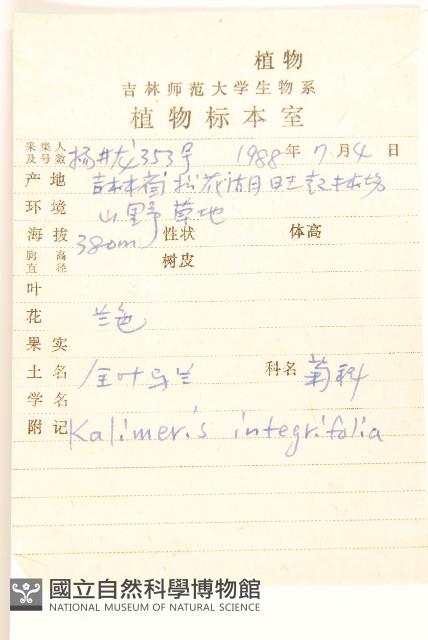 植物
吉林师范大学生物系
植物标本室
采集人及号数 杨井友353号 1988年 7月4日
产地 吉林省松花湖旺起林场
环境 山野草地
海拔 380m 性状 体高
胸高直径 树皮
叶
花 兰色
果实
土名 全叶马兰 科名 菊科
学名
附记 Kalimeris integrifolia
國立自然科學博物館
NATIONAL MUSEUM OF NATURAL SCIENCE